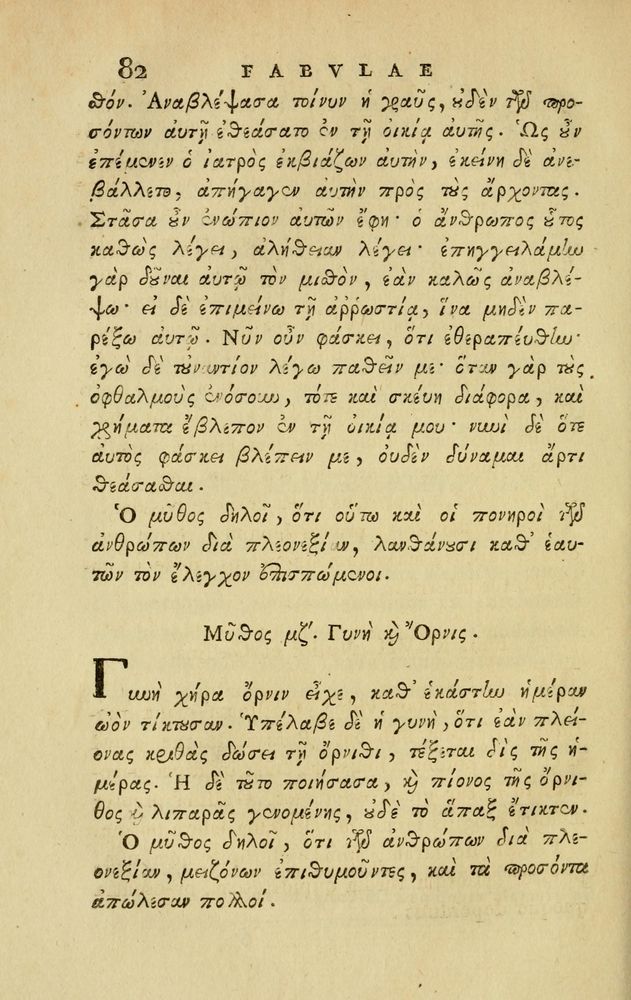 82 FABVLAE
θόν. Ἀναβλέψασα τοίνυν ἡ γραῦς, οὐδὲν τῶν προ-
σόντων αὐτῇ ἐθεάσατο ἐν τῇ οἰκίᾳ αὐτῆς. Ὡς οὖν
ἐπέμενεν ὁ ἰατρὸς ἐκβιάζων αὐτὴν, ἐκείνη δὲ ἀνε-
βάλλετο, ἀπήγαγεν αὐτὴν πρὸς τοὺς ἄρχοντας.
Στᾶσα οὖν ἐνώπιον αὐτῶν ἔφη· ὁ ἄνθρωπος οὗτος
καθὼς λέγει, ἀλήθειαν λέγει· ἐπηγγειλάμην
γὰρ δοῦναι αὐτῷ τὸν μισθὸν, ἐὰν καλῶς ἀναβλέ-
ψω· εἰ δὲ ἐπιμείνω τῇ ἀῤῥωστίᾳ, ἵνα μηδὲν πα-
ρέξω αὐτῷ. Νῦν οὖν φάσκει, ὅτι ἐθεραπεύθην·
ἐγὼ δὲ τοὐναντίον λέγω παθεῖν με· ὅταν γὰρ τοὺς
ὀφθαλμοὺς ἐνόσουν, τότε καὶ σκεύη διάφορα, καὶ
χρήματα ἔβλεπον ἐν τῇ οἰκίᾳ μου· νυνὶ δὲ ὅτε
αὐτὸς φάσκει βλέπειν με, οὐδὲν δύναμαι ἄρτι
θεάσασθαι.
Ὁ μῦθος δηλοῖ, ὅτι οὕτω καὶ οἱ πονηροὶ τῶν
ἀνθρώπων διὰ πλεονεξίαν, λανθάνουσι καθ' ἑαυ-
τῶν τὸν ἔλεγχον ἐπισπώμενοι.
Μῦθος μζʹ. Γυνὴ καὶ Ὄρνις.
Γυνὴ χήρα ὄρνιν εἶχε, καθ' ἑκάστην ἡμέραν
ὠὸν τίκτουσαν. Ὑπέλαβε δὲ ἡ γυνὴ, ὅτι ἐὰν πλεί-
ονας κριθὰς δώσει τῇ ὄρνιθι, τέξεται δὶς τῆς ἡ-
μέρας. Ἡ δὲ τοῦτο ποιήσασα, καὶ πίονος τῆς ὄρνι-
θος καὶ λιπαρᾶς γενομένης, οὐδὲ τὸ ἅπαξ ἔτικτεν.
Ὁ μῦθος δηλοῖ, ὅτι τῶν ἀνθρώπων διὰ πλε-
ονεξίαν, μειζόνων ἐπιθυμοῦντες, καὶ τὰ προσόντα
ἀπώλεσαν πολλοί.